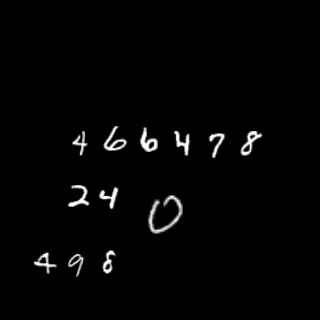 466478
24 0
498